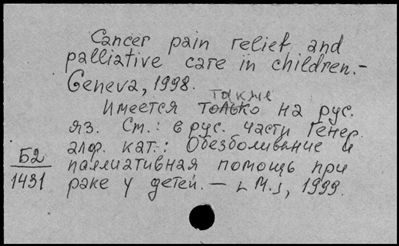 Cancer pain relief and
palliative care in children.-
Geneva, 1998.
также
Имеется только на рус.
яз. См.: в рус. части Генер.
алф. кат.: Обезболивание и
Б2
паллиативная помощь при
1431
раке у детей. – [М.], 1999.